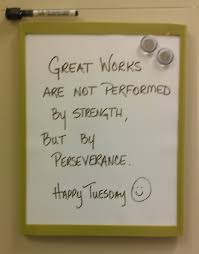 GREAT WORKS
ARE NOT PERFORMED
BY STRENGTH,
BUT BY
PERSEVERANCE.
HAPPY TUESDAY